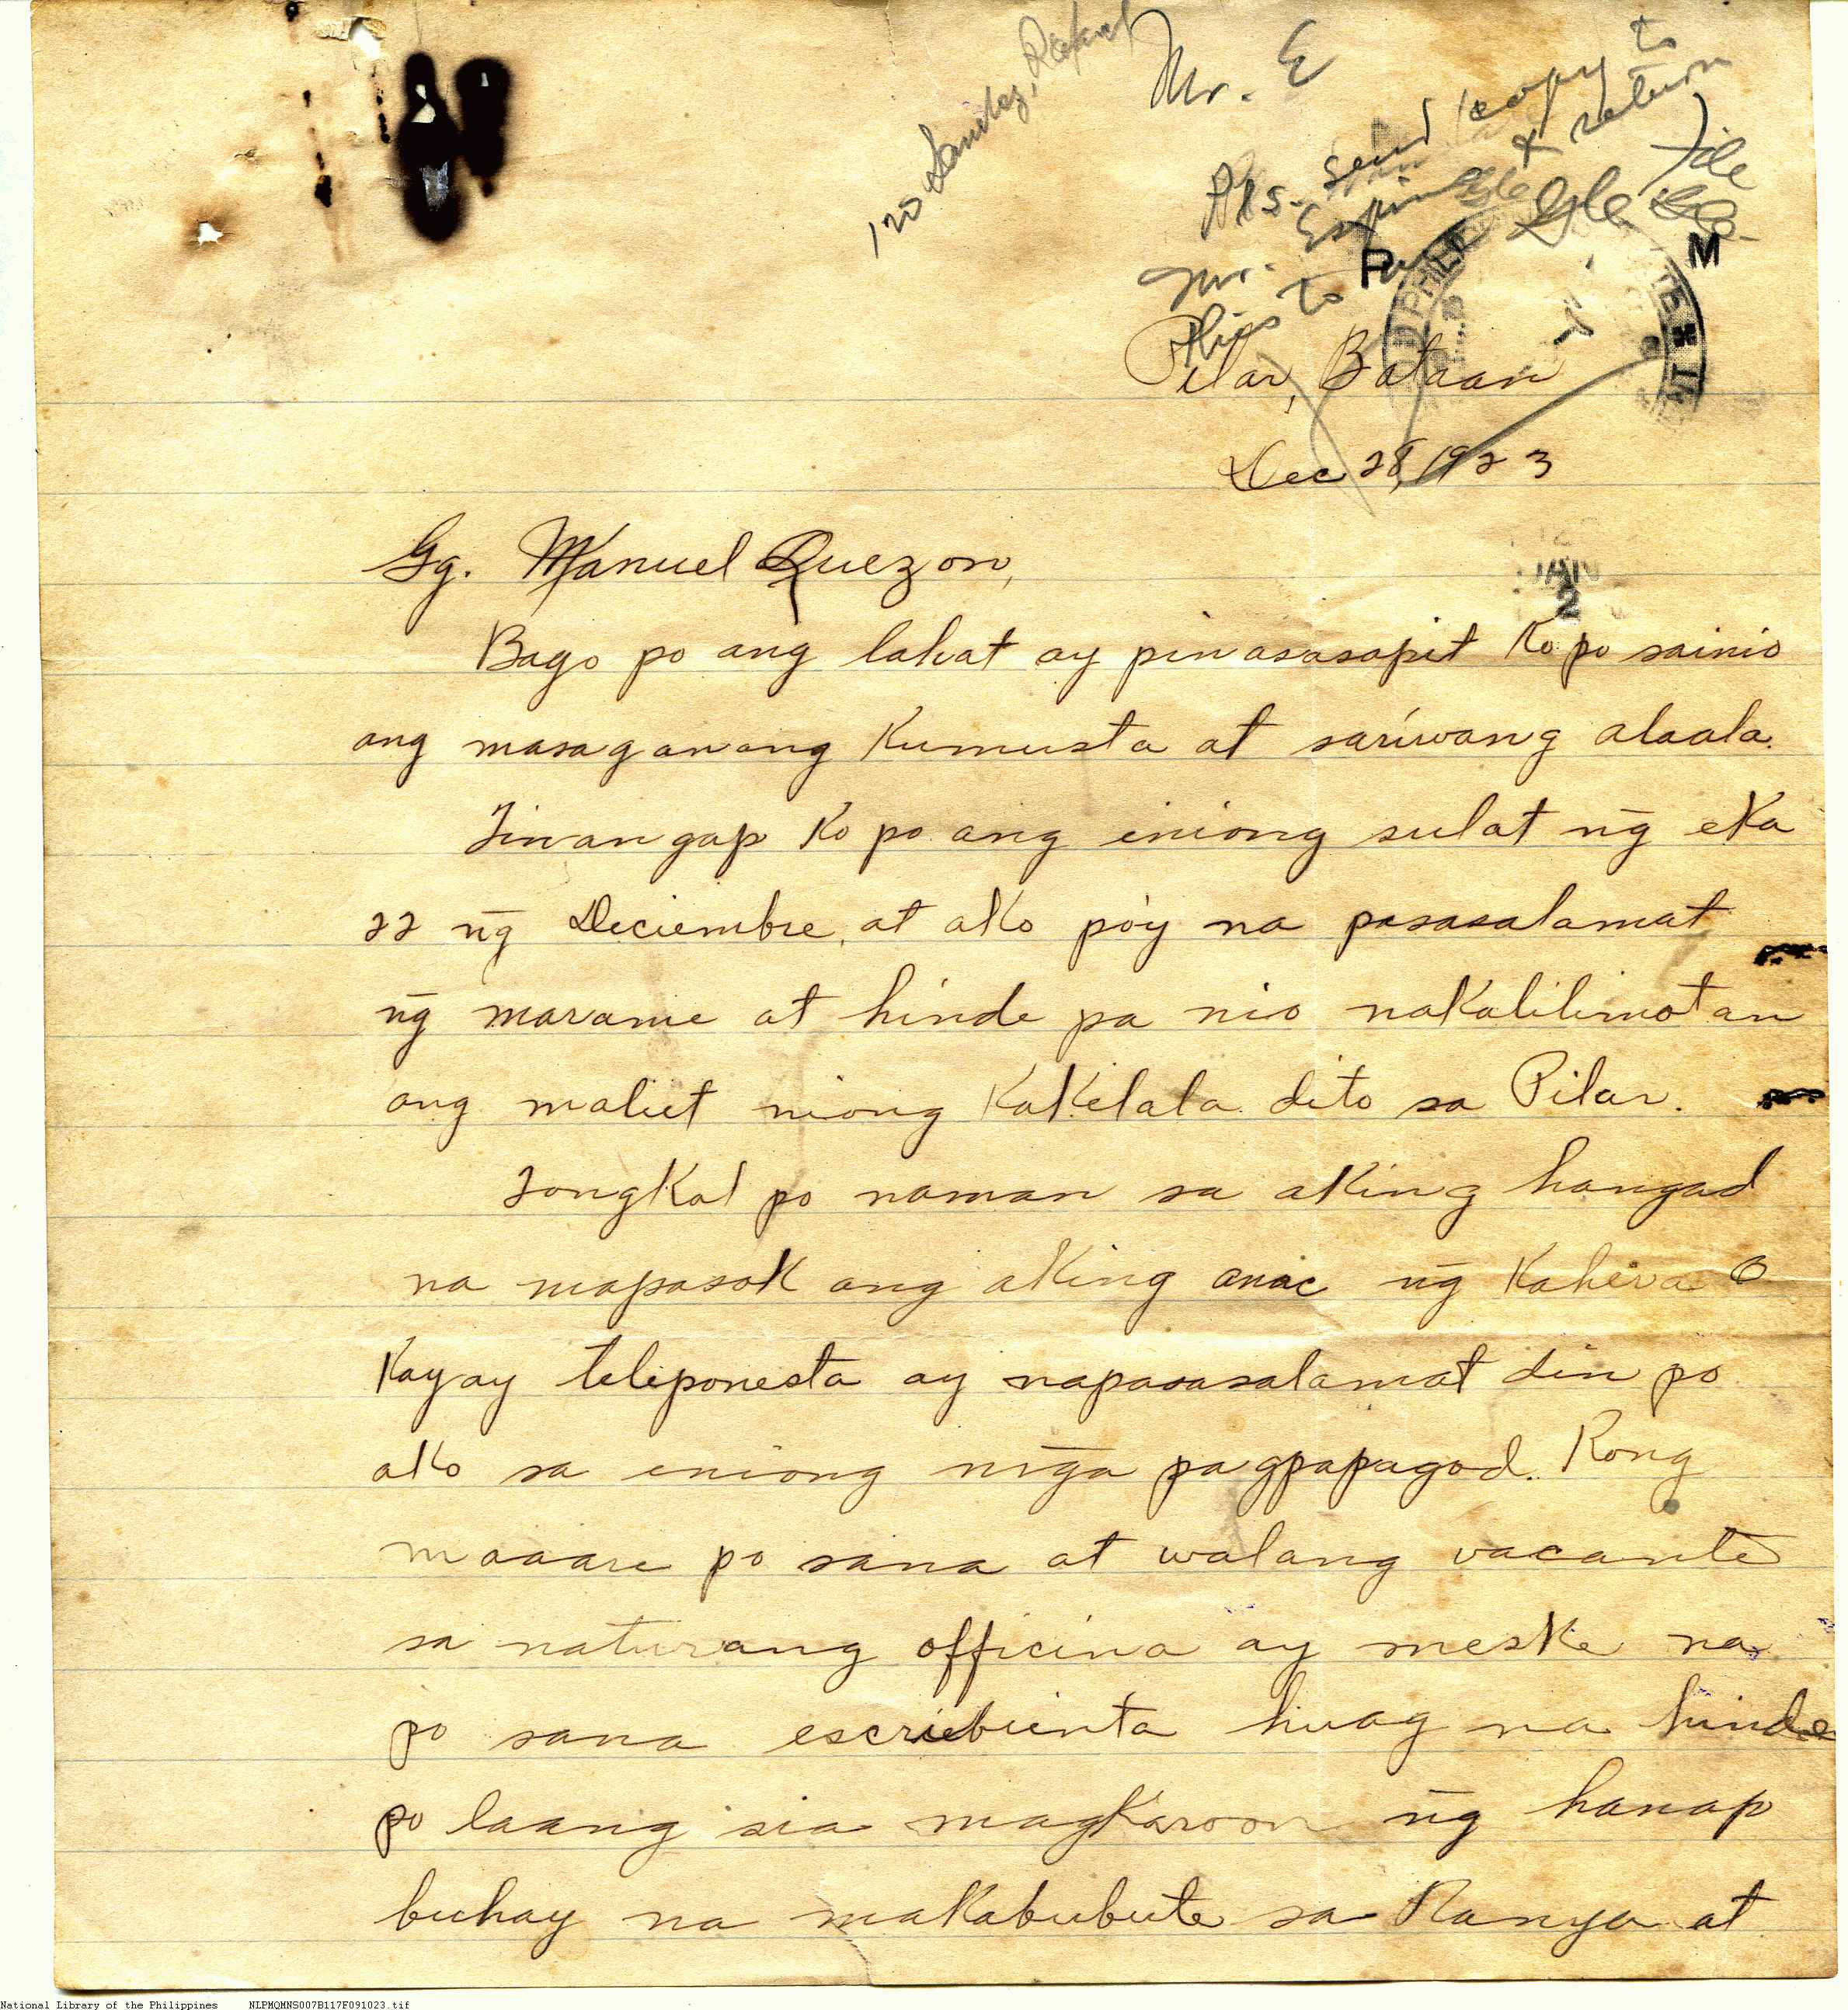 Mr. E
Pls. send 1 copy to
Mr. Espino & return
this to
File
P M
Pilar, Bataan
Dec 28, 1923
JAN
2
Gg. Manuel Quezon,
Bago po ang lahat ay pinasasapit Ko po sainio
ang masaganang Kumusta at sariwang alaala.
Tinangap Ko po ang eniong sulat n̄g eKa
22 n̄g Deciembre, at aKo po'y na pasasalamat
n̄g marame at hinde pa nio naKalilimotan
ang maliet niong KaKelala dito sa Pilar.
TongKol po naman sa aKing hangad
na mapasoK ang aKing anac n̄g Kahera O
Kayay teleponesta ay napasasalamat din po
aKo sa eniong mn̄ga pagpapagod. Kong
maaare po sana at walang vacante
sa naturang officina ay mesKe na
po sana escriebienta huag na hinde
po laang sia magKaroon n̄g hanap
buhay na maKabubute sa Kanya at
National Library of the Philippines NLPMQMNS007B117F091023.tif